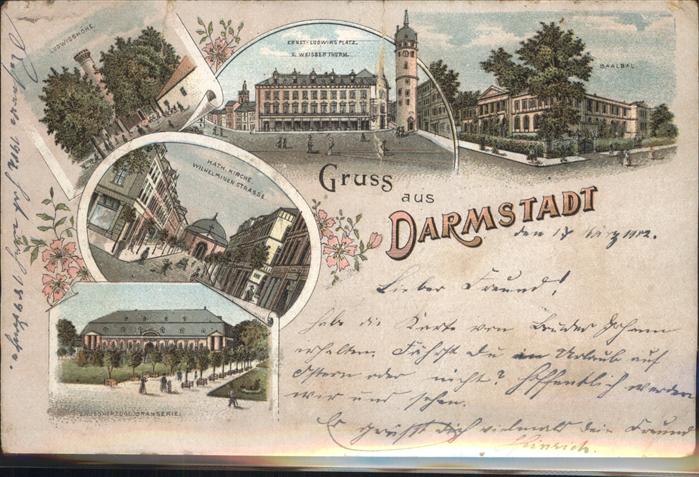 LUDWIGSHÖHE
ERNST-LUDWIGS PLATZ.
U. WEISSER THURM.
SAALBAU.
KATH. KIRCHE.
WILHELMINEN STRASSE.
GROSSHERZOGL. ORANGERIE.
Gruss
aus
DARMSTADT
den 17
Lieber Freund!
habe die Karte von Bruder Johann
erhalten. Fährst Du in Urlaub auf
Ostern oder nicht? Hoffentlich werden
wir uns sehen.
Es grüßt Dich vielmals Dein Freund
Heinrich.